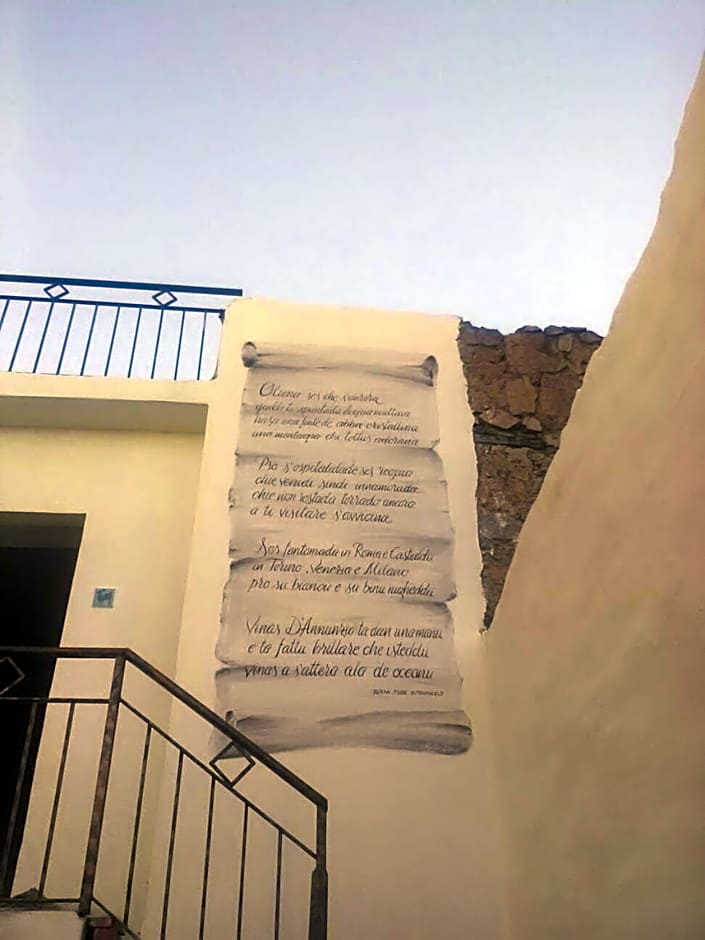 Oliena ses che s'aurora
cande est
nasa una fonte de abba cristallina
una montagna chi tottus adorana
Pro s'ospitalidade ses reqina
chie venidi sindi innamorada
chie non restada torrada ancora
a ti visitare s'avvicina
Ses fentomada in Roma e Casteddu
in Torino, Venezia e Milano
pro su biancu e su binu nigheddu
Vinas D'Annunzio ta dau una manu
e ta fattu brillare che isteddu
vinas a s'attera ala de oceanu